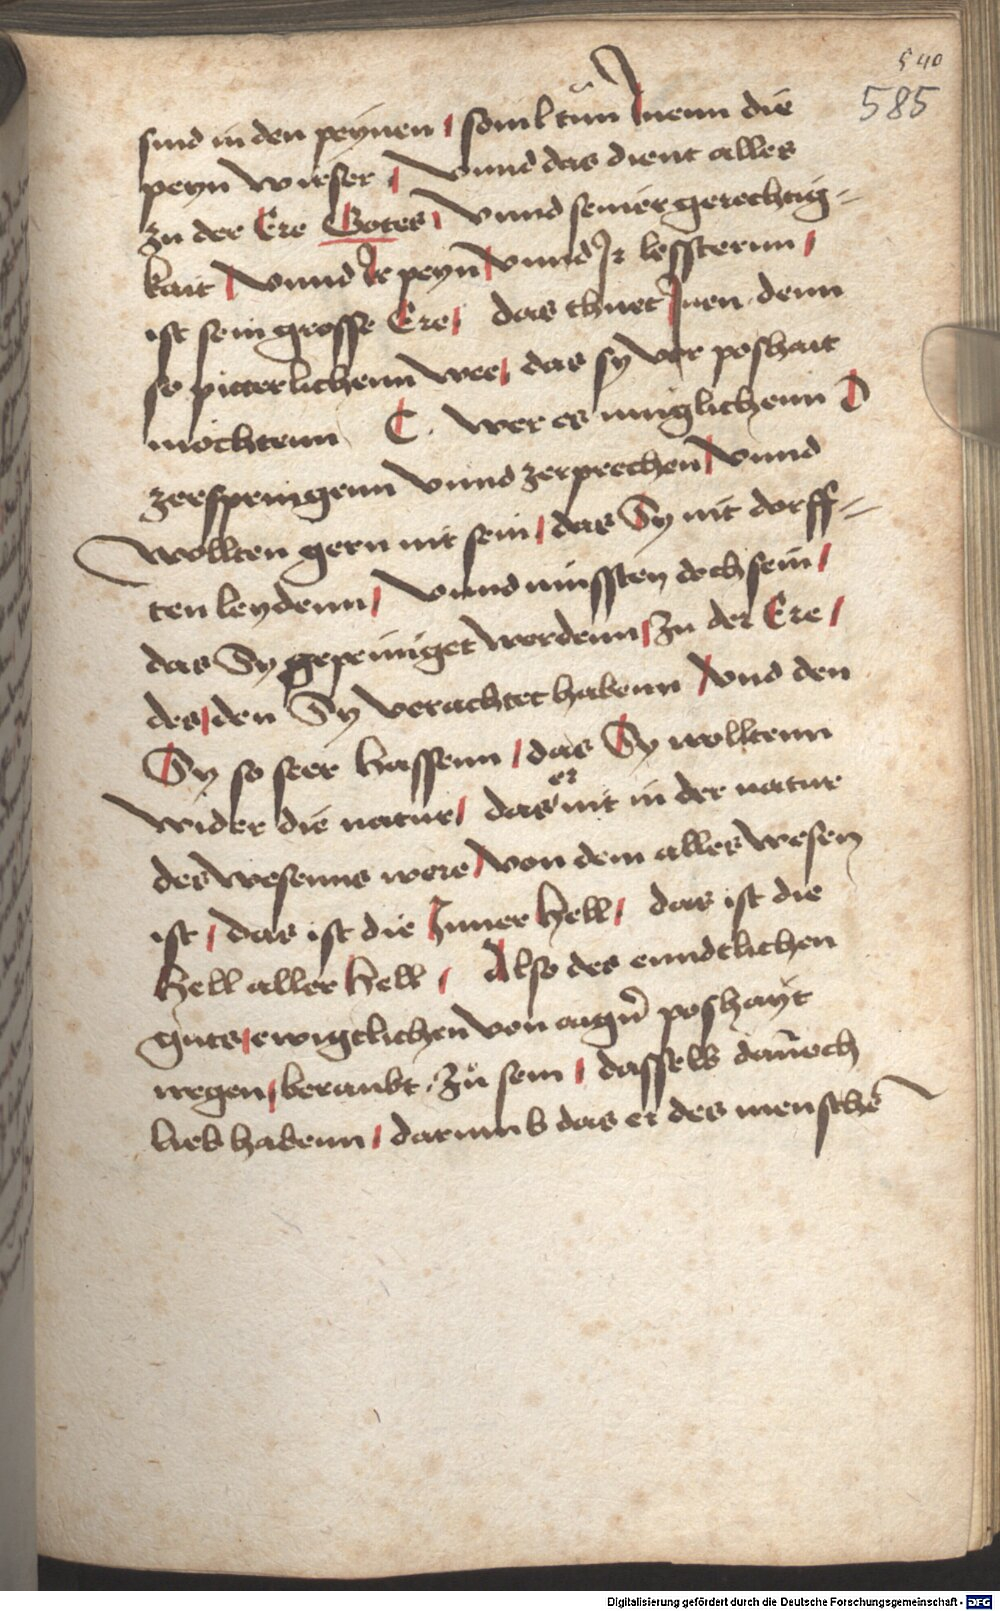 540
585
sind in den peynen / souil tůn Inenn die
peyn wirser / Vnnd das dient alles
zu der Ere Gotes / Vnnd seiner gerechtig=
kait / Vnnd Ir peyn / Vnnd Ir lessterun /
ist sein grosse Ere / das thuet Inen denn
so pitterlichenn wee / das sy vor poshait
möchtenn C. wer es muglichenn D
zerspringenn vnnd zerprechen / Vnnd
wollten gern nit sein / das Sy nit dorff=
ten leydenn / Vnnd müssten doch sein /
das Sy gepeiniget werdenn / zu der Ere /
des / den Sy verachtet habenn / Vnd den
Sy so seer hassenn / das Sy wolltenn
wider die natur / das er nit in der natur
des wesenns were / Von dem alles wesen
ist / das ist die Inner hell / das ist die
hell aller hell / Also des enndtlichen
guts / ewigclichen von aagn̄ poshayt
wegen / beraubt zů sein / dasselb dan̄och
lieb habenn / darumb das er des menschē
Digitalisierung gefördert durch die Deutsche Forschungsgemeinschaft - DFG